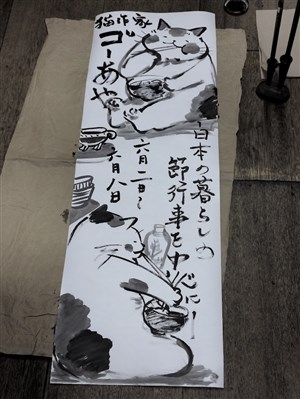 猫作家
ゴーあや
日本の暮らしの
節行事を中心に
六月二日〜
六月八日